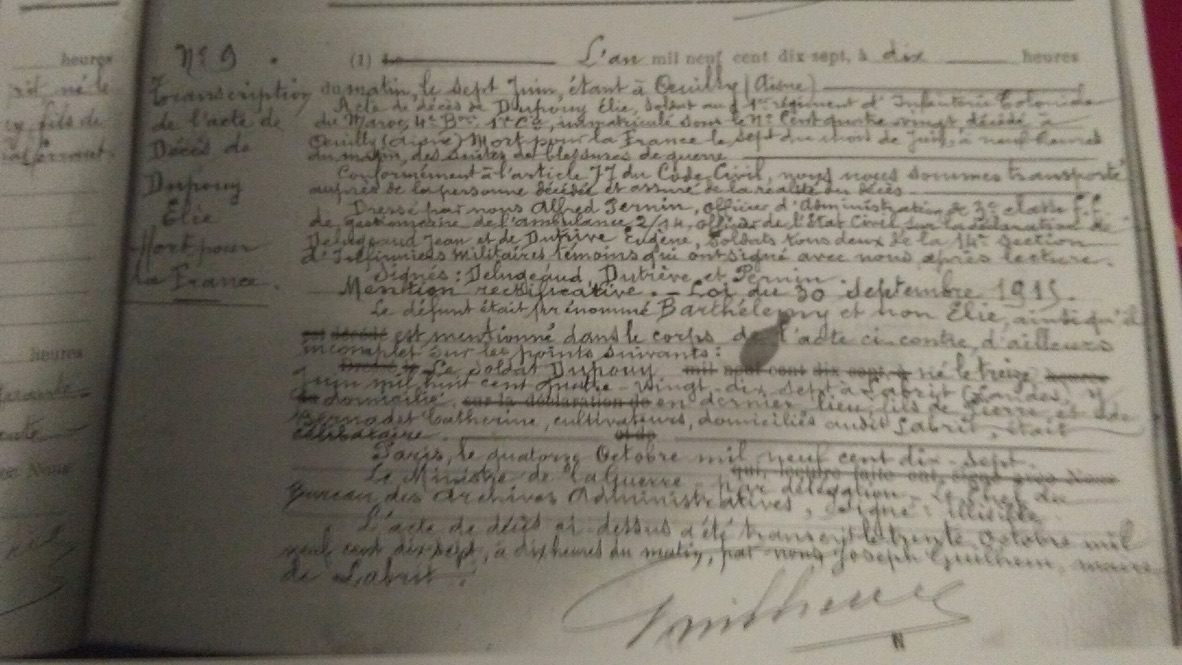 heures
né le
fils de
N° 9.
Transcription
de l'acte de
Décès de
Dupouy
Élie
Mort pour
la France.
(1) Le L'an mil neuf cent dix sept, à dix heures
du matin, le sept Juin, étant à Oeuilly (Aisne)
Acte de décès de Dupouy Elie, soldat au 1er régiment d'Infanterie Coloniale
du Maroc, 4e Bon 1e Cie, immatriculé sous le N° Cent quatre vingt, décédé à
Oeuilly (Aisne) Mort pour la France le sept du mois de Juin, à neuf heures
du matin, des suites de blessures de guerre
Conformément à l'article 77 du Code Civil, nous nous sommes transporté
auprès de la personne décédée et assuré de la réalité du décès
Dressé par nous Alfred Pernin, officier d'Administration de 3e classe
de gestionnaire de l'ambulance 2/14, officier de l'État Civil, sur la déclaration de
Delugeaud Jean et de Dutrève Eugène, soldats tous deux de la 14e section
d'Infirmiers Militaires témoins qui ont signé avec nous après lecture.
Signés: Delugeaud, Dutrève et Pernin
Mention rectificative. - Loi du 30 septembre 1915.
Le défunt était prénommé Barthélemy et non Elie, ainsi qu'il
est mentionné dans le corps de l'acte ci-contre, d'ailleurs
incomplet sur les points suivants:
Le soldat Dupouy, mil neuf cent dix sept, à né le treize
Juin mil huit cent quatre-vingt-dix sept à Labrit (Landes), y
domicilié, sur la déclaration de en dernier lieu, fils de Pierre, et de
Bernadet Catherine, cultivateurs, domiciliés audit Labrit, était
célibataire. et de
Paris, le quatorze Octobre mil neuf cent dix-sept.
Le Ministre de la Guerre qui, lecture faite ont signé avec Nous
par délégation - Le Chef du
Bureau des Archives Administratives, signé: illisible.
L'acte de décès ci-dessus a été transcrit le trente Octobre mil
neuf cent dix-sept, à dix heures du matin, par nous Joseph Guilhem, maire
de Labrit.
Guilhem
heures
N